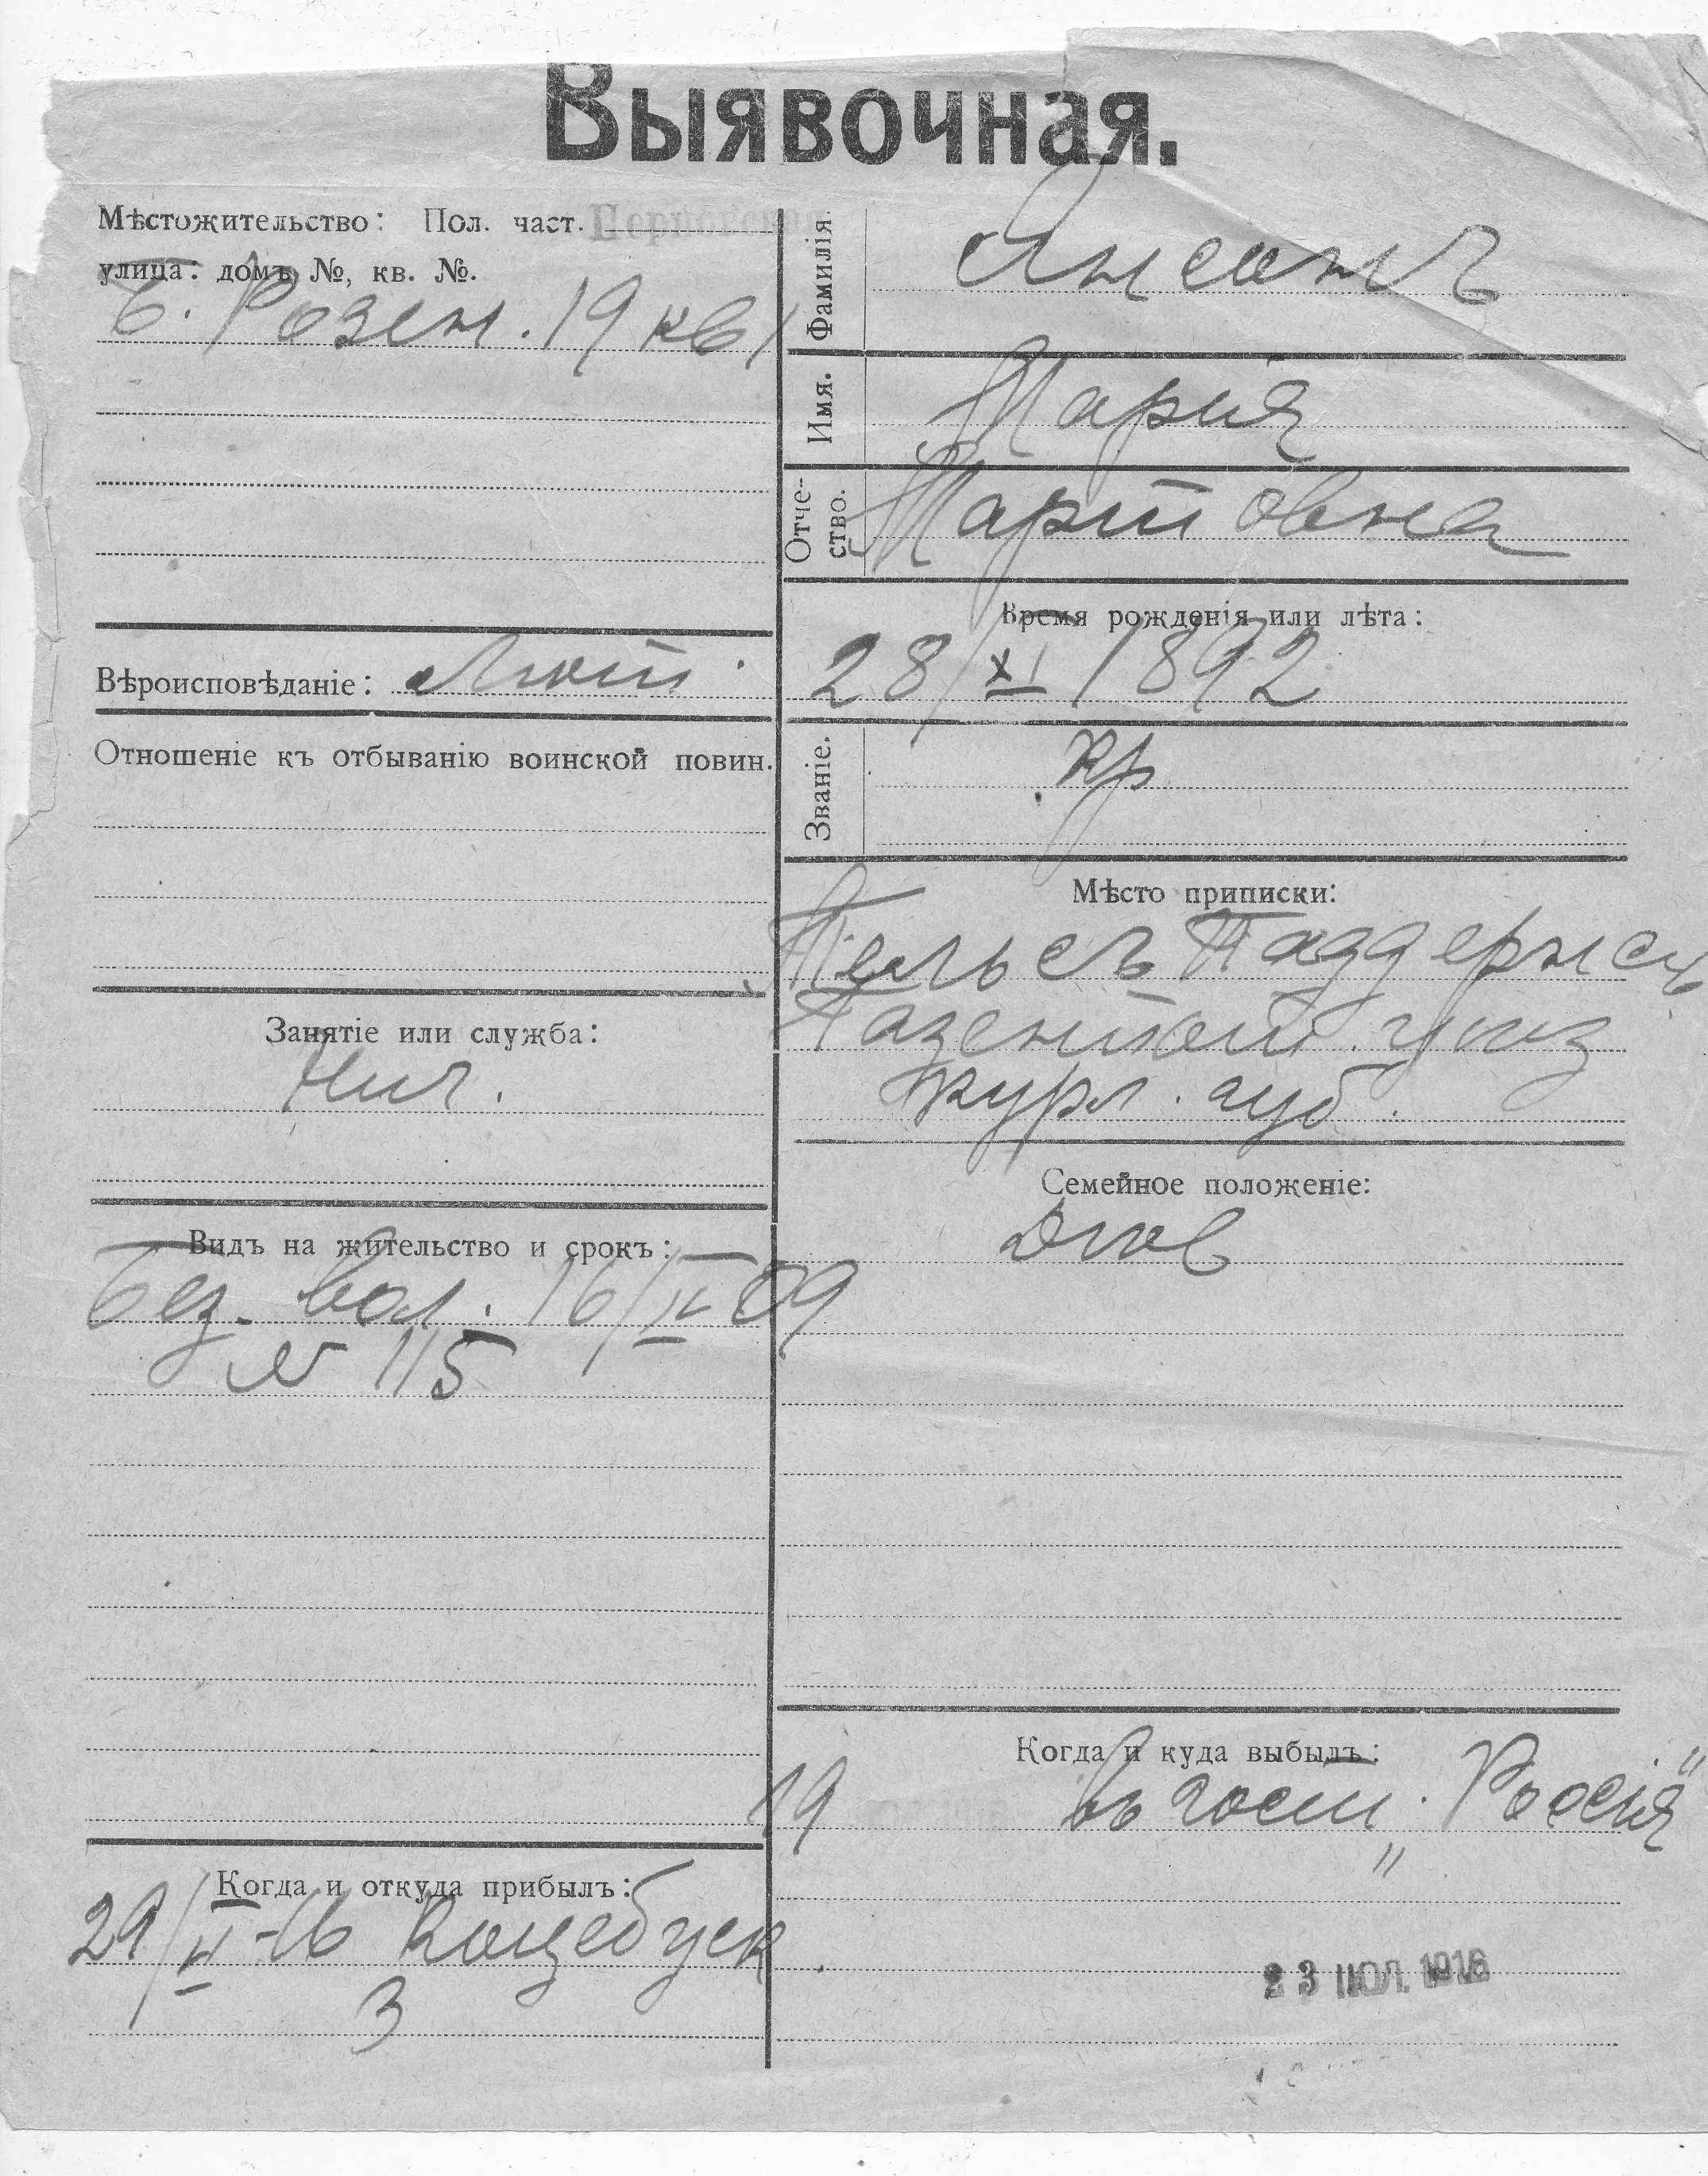 Выявочная.
Мѣстожительство: Пол. част.
улица: домъ №, кв. №.
Б. Розен. 19 кв 1
Вѣроисповѣданіе: Лют.
Отношеніе къ отбыванію воинской повин.
Занятіе или служба:
Видъ на жительство и срокъ:
Без. вол. 16/II 09
№ 115
Когда и откуда прибылъ:
29/II-16 Коцебуск
3
Фамилія.
Янсонъ
Имя.
Марія
Отче-
ство.
Мартовна
Время рожденія или лѣта:
28/XI 1892
Званіе.
Кр
Мѣсто приписки:
Газенпот. уѣз
Курл. губ.
Семейное положеніе:
Когда и куда выбылъ:
19 въ гост. „Россія"
23 ІЮЛ. 1916